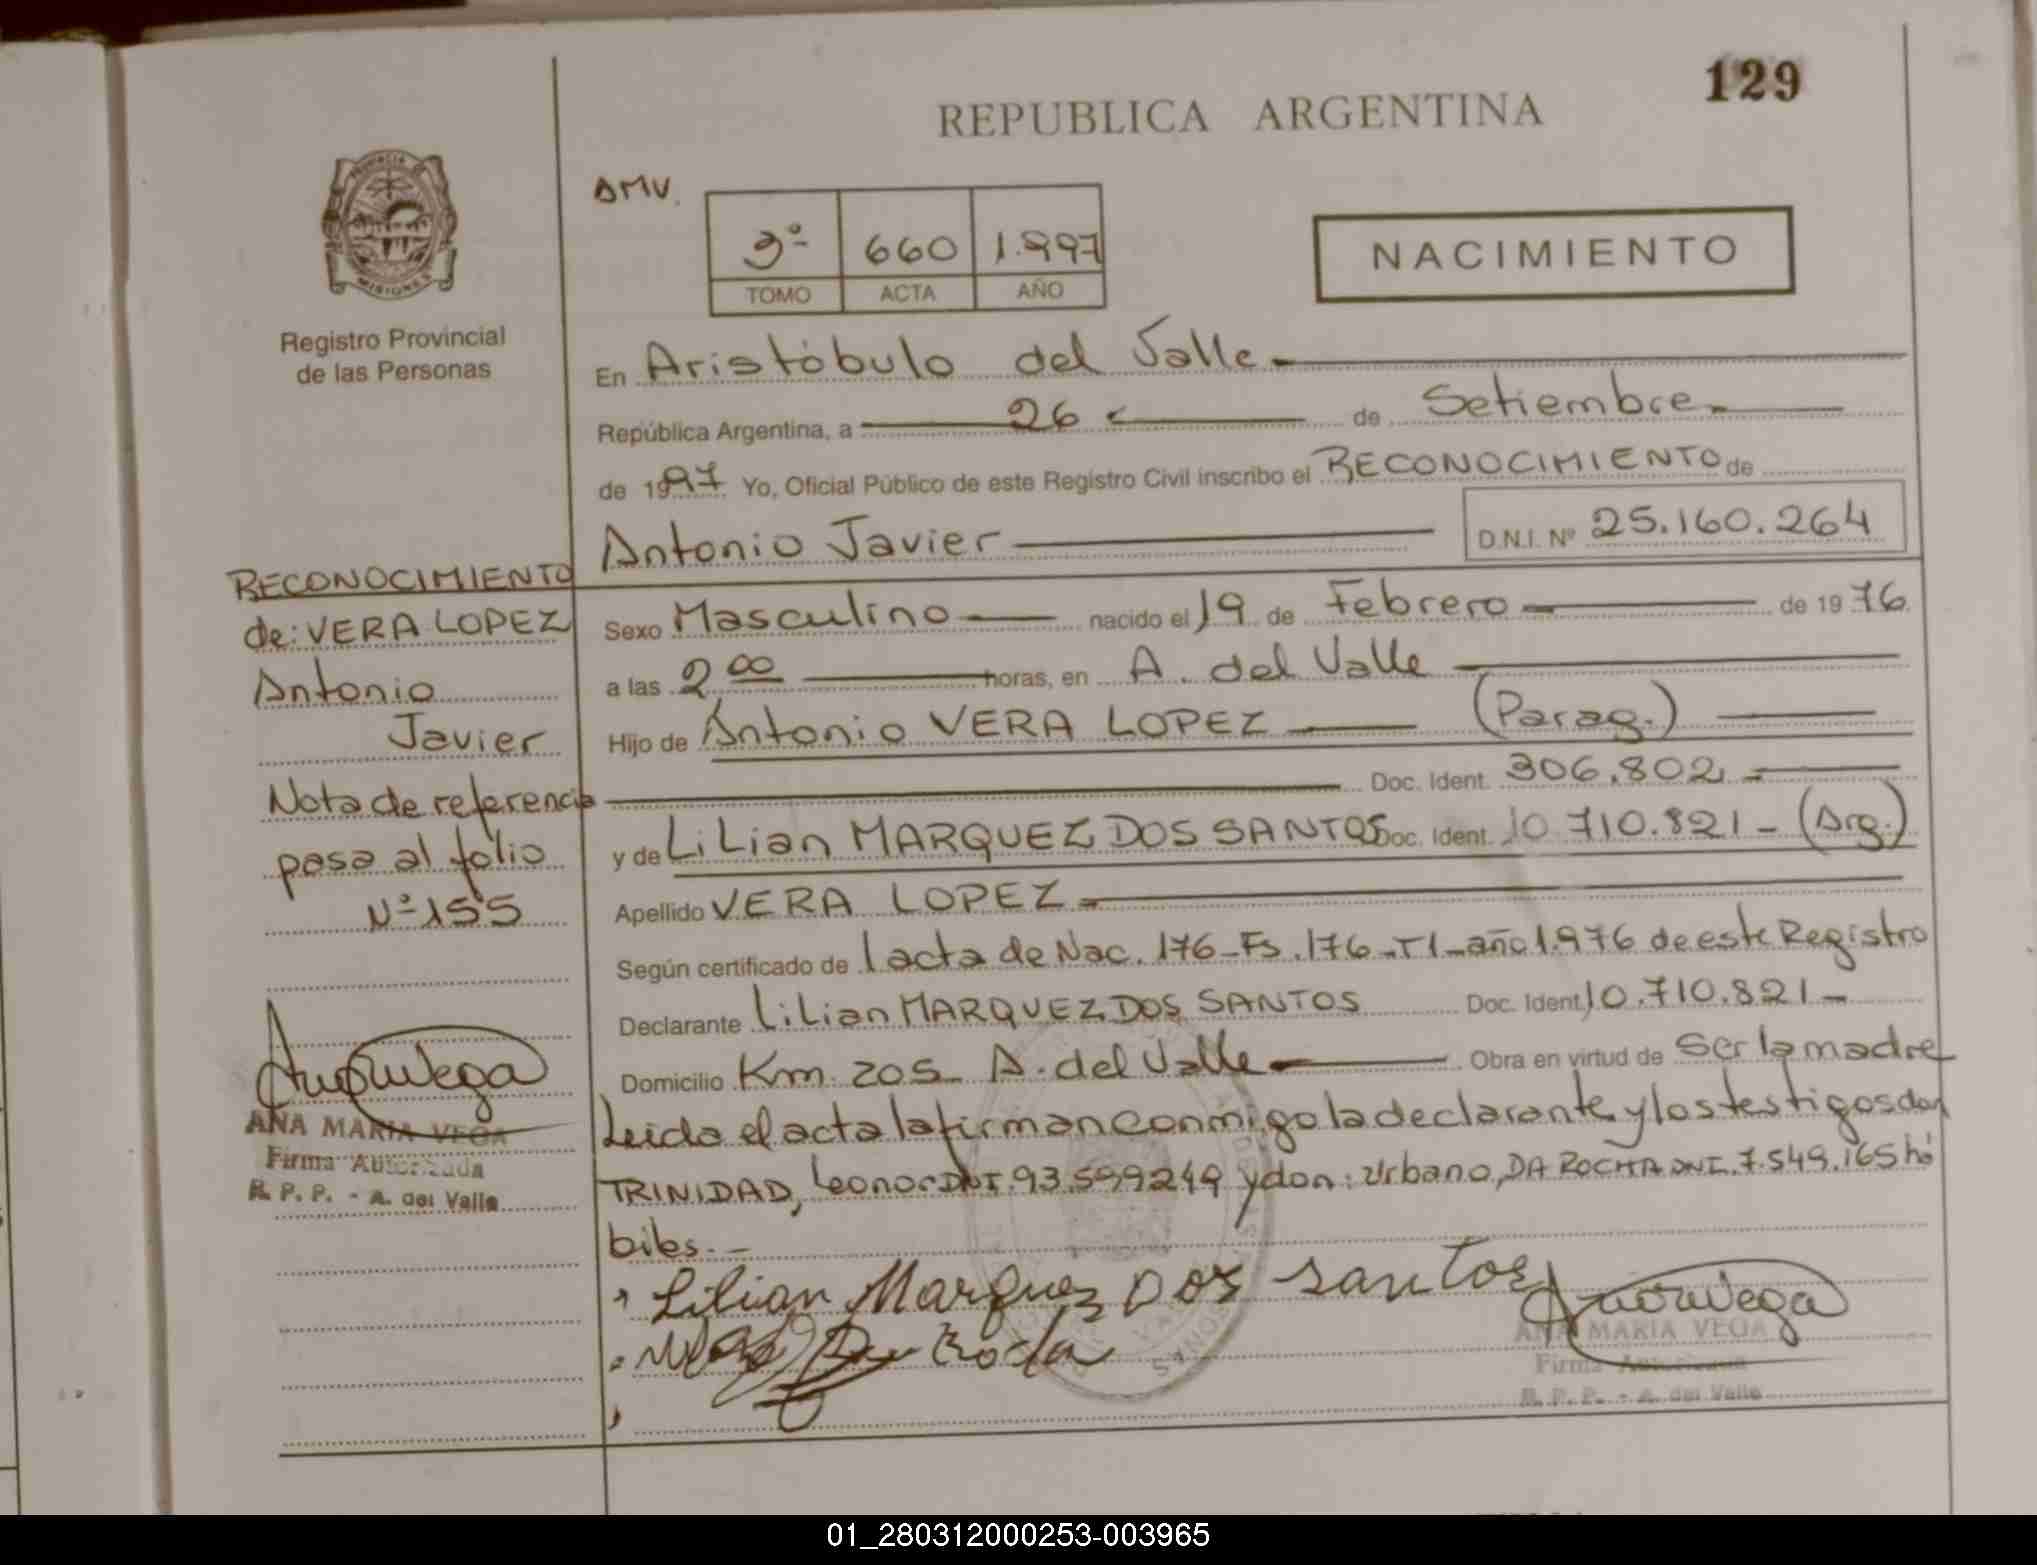 129
REPUBLICA ARGENTINA
PROVINCIA
MISIONES
Registro Provincial
de las Personas
DMV.
3º 660 1.997
TOMO ACTA AÑO
NACIMIENTO
En Aristóbulo del Valle
República Argentina, a 26 de Setiembre
de 1997 Yo, Oficial Público de este Registro Civil inscribo el RECONOCIMIENTO de
Antonio Javier D.N.I. Nº 25.160.264
RECONOCIMIENTO
de: VERA LOPEZ
Antonio
Javier
Nota de referencia
pasa al folio
Nº 155
ANA MARIA VEGA
Firma Autorizada
R. P. P. - A. del Valle
Sexo Masculino nacido el 19 de Febrero de 1976
a las 2 00 horas, en A. del Valle
Hijo de Antonio VERA LOPEZ (Parag.)
Doc. Ident. 306.802
y de Lilian MARQUEZ DOS SANTOS Doc. Ident. 10.710.821 - (Arg.)
Apellido VERA LOPEZ
Según certificado de 1 acta de Nac. 176-Fs.176-T1-año 1.976 de este Registro
Declarante Lilian MARQUEZ DOS SANTOS Doc. Ident. 10.710.821 -
Domicilio Km. 205 A. del Valle Obra en virtud de Ser la madre
Leida el acta la firman conmigo la declarante y los testigos don
TRINIDAD, Leonor DNI. 93.599249 y don: Urbano, DA ROCHA DNI. 7.549.165 há
biles. -
Lilian Marquez Dos Santos
ANA MARIA VEGA
Firma Autorizada
R. P. P. - A. del Valle
01_280312000253-003965